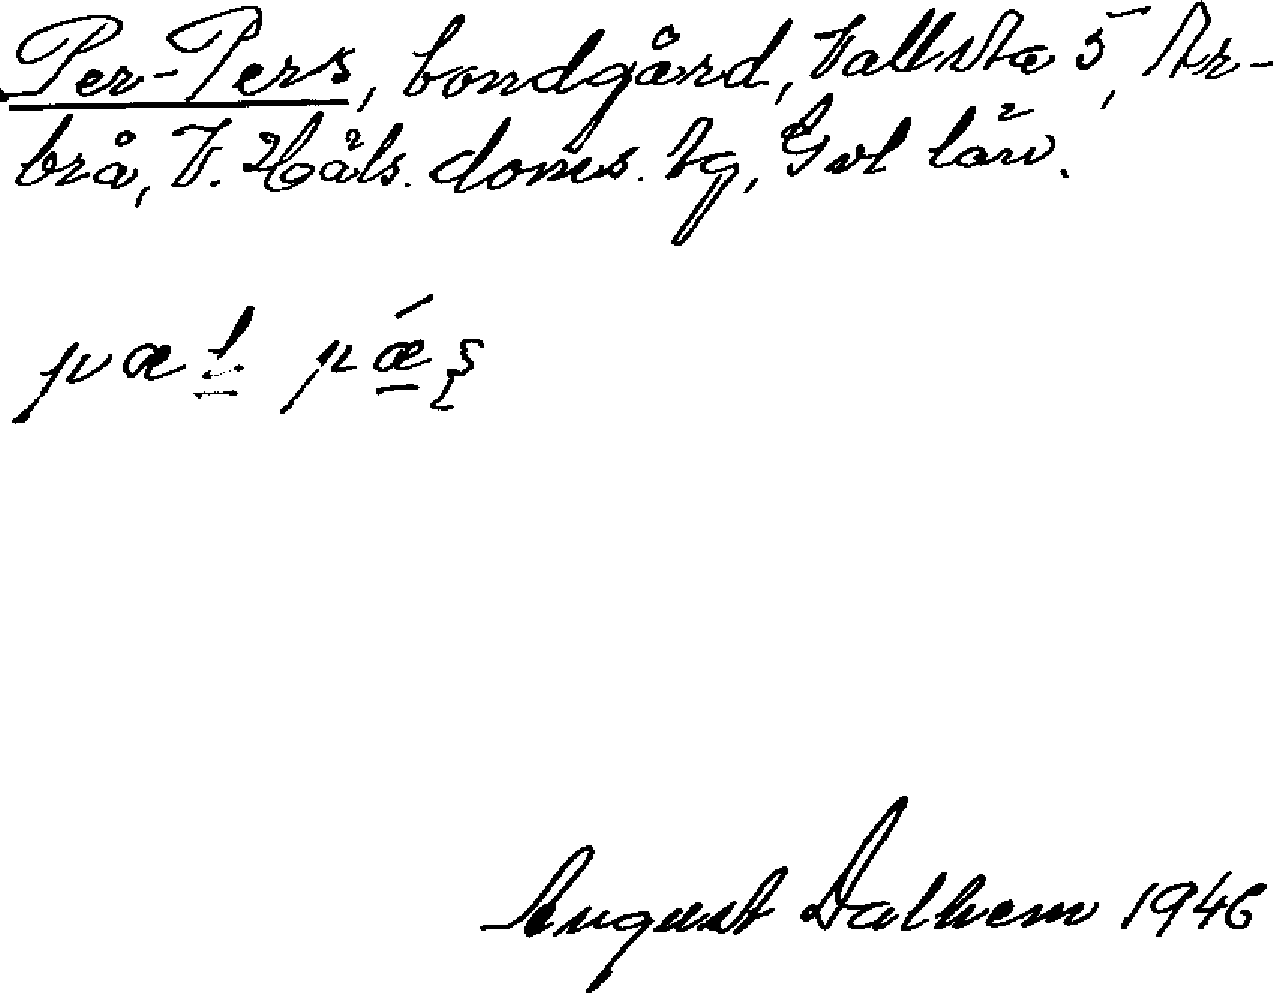 Per-Pers, bondgård, Vallsta 5, Ar-
brå, V. Häls. doms. tg, Gvl län.
pæl pǽʂ
August Dalhem 1946